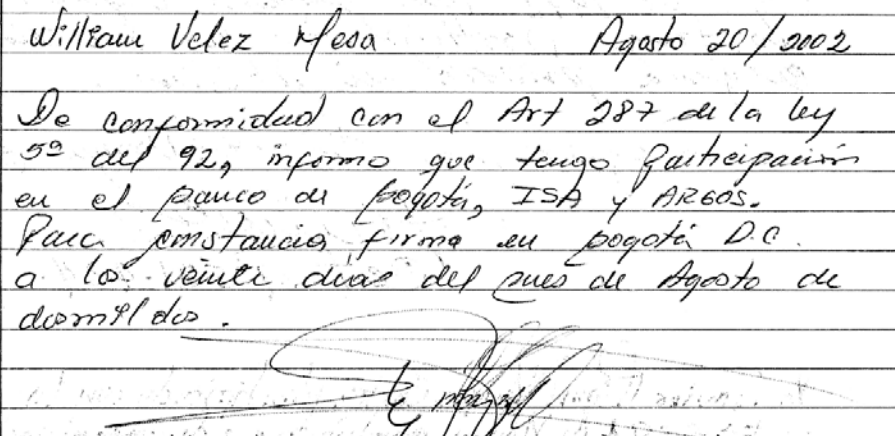 William Velez Mesa Agosto 20/2002
De conformidad con el Art 287 de la ley
5ª del 92, informo que tengo participación
en el banco de bogotá, ISA y ARGOS.
Para constancia firmo en bogotá D.C.
a los veinte dias del mes de Agosto de
dosmil dos.